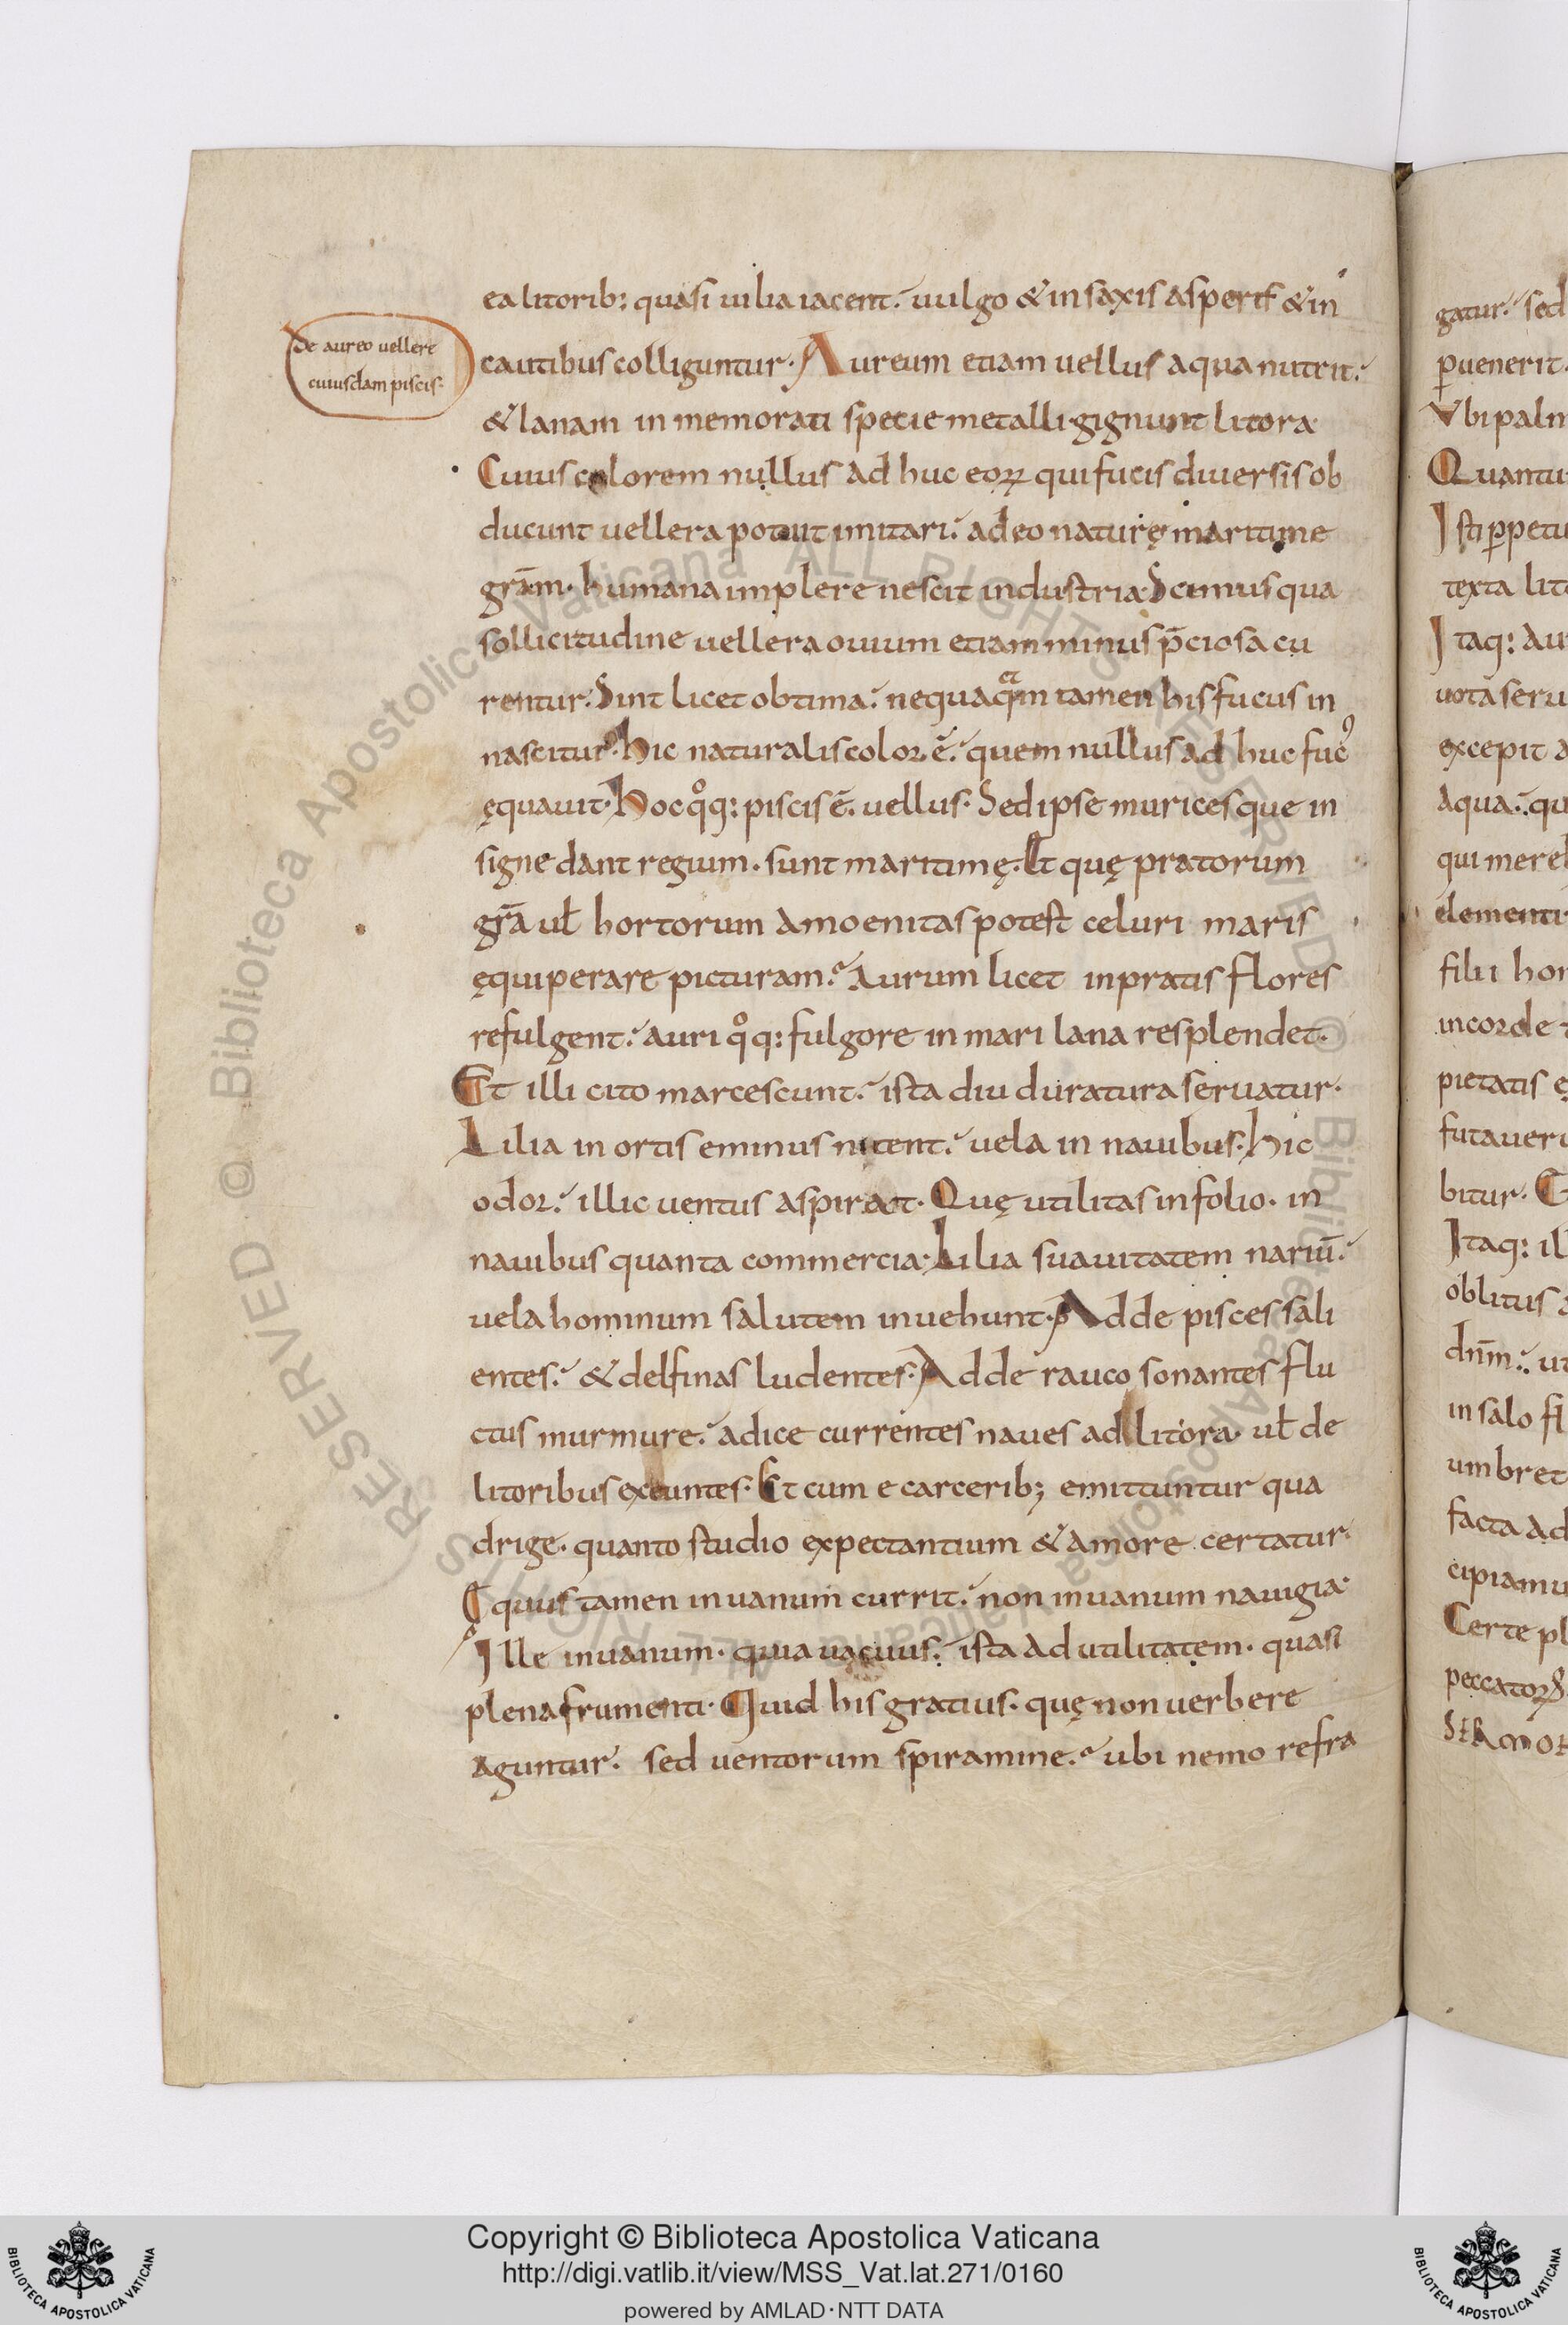 ea litorib; quasi uilia iacent. uulgo & in saxis asperis & in
De aureo uellere
cuiusdam piscis.
cautibus colliguntur. Aureum etiam uellus aqua nutrit.
& lanam in memorati specie metalli gignunt litora
Cuius colorem nullus ad huc eoꝝ qui fucis diuersis ob
ducunt uellera potuit imitari. adeo naturę maritime
gr̄am. humana implere nescit industria. Scimus qua
sollicitudine uellera ouium etiam minus p̄ciosa cu
rentur. Sint licet obtima. nequaqͣm tamen his fucus in
nascitur. hic naturalis color ē. quem nullus ad huc fucꝰ
ęquauit. Hoc qͦq: piscis ē. uellus. Sed ipse murices que in
signe dant regium. sunt maritimę. Et quę pratorum
gr̄a uł hortorum amoenitas potest celuri maris
ęquiperare picturam. Aurum licet in pratis flores
refulgent. auri qͦq: fulgore in mari lana resplendet.
Et illi cito marcescunt. ista diu duratura seruatur.
Lilia in ortis eminus nitent. uela in nauibus. hic
odor. illic uentus aspirat. Quę utilitas in folio. in
nauibus quanta commercia. Lilia suauitatem nariū.
uela hominum salutem inuehunt. Adde pisces sali
entes. & delfinas ludentes. Adde rauco sonantes flu
ctus murmure. adice currentes naues ad litora. uł de
litoribus exeuntes. Et cum e carcerib; emittuntur qua
drige. quanto studio expectantium & amore certatur.
Ęquus tamen in uanum currit. non in uanum nauigia.
Ille in uanum. quia uacuus. ista ad utilitatem. quasi
plena frumenti. Quid his gratius. quę non uerbere
aguntur. sed uentorum spiramine. ubi nemo refra
gatur. sed
ꝑuenerit.
Vbi palm
Quantu
Isti ꝑpetu
texta lit
Itaq: au
uota seru
excepit a
aqua. qu
qui mere
elementi
filii hor
in corde
pietatis ę
futaueri
bitur.
Itaq: il
oblitus
dn̄m. ut
in salo fl
umbret
facta ad
cipiamu
Certe pl
peccatoꝝ
Copyright © Biblioteca Apostolica Vaticana
http://digi.vatlib.it/view/MSS_Vat.lat.271/0160
powered by AMLAD·NTT DATA
BIBLIOTECA APOSTOLICA VATICANA
BIBLIOTECA APOSTOLICA VATICANA
© Biblioteca Apostolica Vaticana ALL RIGHTS RESERVED © Biblioteca Apostolica Vaticana ALL RIGHTS RESERVED